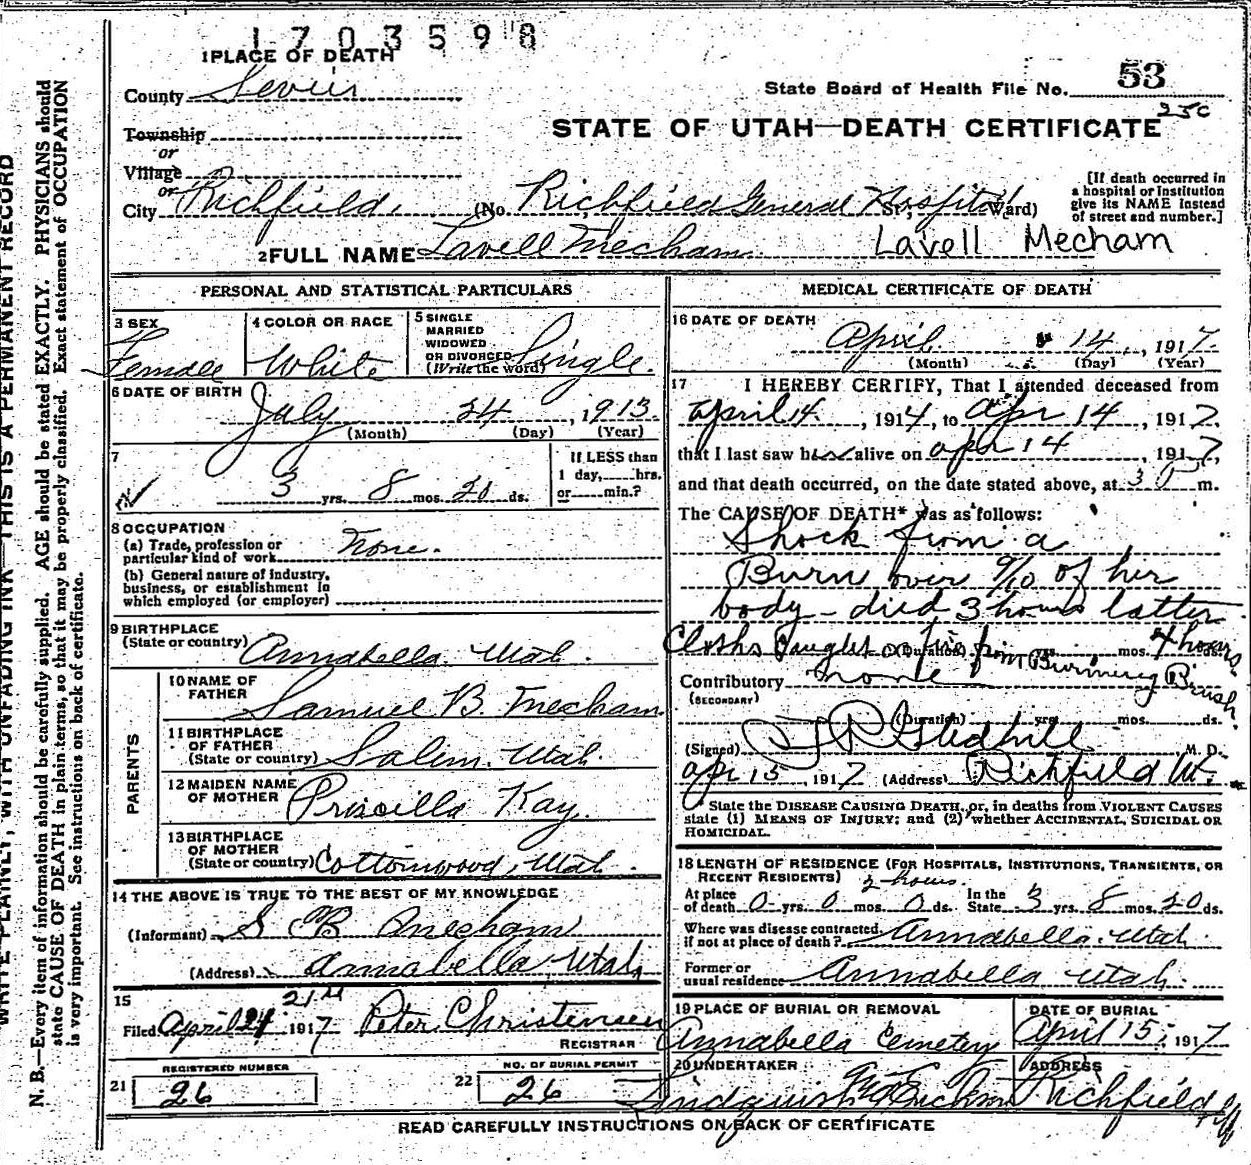 1703598
1 PLACE OF DEATH
County Sevier
State Board of Health File No. 53
25c
Township
or
STATE OF UTAH—DEATH CERTIFICATE
Village
or
City Richfield. (No. Richfield General Hospital St., Ward)
[If death occurred in a hospital or institution give its NAME instead of street and number.]
2 FULL NAME Lavell Mecham Lavell Mecham
PERSONAL AND STATISTICAL PARTICULARS
3 SEX Female
4 COLOR OR RACE White
5 SINGLE MARRIED WIDOWED OR DIVORCED (Write the word) Single.
6 DATE OF BIRTH July 24, 1913
(Month) (Day) (Year)
7 3 yrs. 8 mos. 20 ds.
If LESS than 1 day, hrs. or min.?
8 OCCUPATION
(a) Trade, profession or particular kind of work None.
(b) General nature of industry, business, or establishment in which employed (or employer)
9 BIRTHPLACE
(State or country) Annabella Utah.
PARENTS
10 NAME OF FATHER Samuel B. Mecham
11 BIRTHPLACE OF FATHER (State or country) Salem, Utah.
12 MAIDEN NAME OF MOTHER Priscilla Kay.
13 BIRTHPLACE OF MOTHER (State or country) Cottonwood, Utah
14 THE ABOVE IS TRUE TO THE BEST OF MY KNOWLEDGE
(Informant) S B Mecham
(Address) Annabella, Utah
15 21st
Filed April 21 1917 Peter Christensen
REGISTRAR
21 REGISTERED NUMBER 26
22 NO. OF BURIAL PERMIT 26
MEDICAL CERTIFICATE OF DEATH
16 DATE OF DEATH April 14, 1917
(Month) (Day) (Year)
17 I HEREBY CERTIFY, That I attended deceased from
April 14, 1914, to Apr 14, 1917.
that I last saw her alive on Apr 14, 1917,
and that death occurred, on the date stated above, at 3 P m.
The CAUSE OF DEATH* was as follows:
Shock from a
Burn over 9/10 of her
body - died 3 hours latter
Cloths Caught on fire from Burning Brush.
(Duration) yrs. mos. 4 hours ds.
Contributory None
(SECONDARY)
(Duration) yrs. mos. ds.
(Signed) Gledhill, M. D.
Apr 15, 1917 (Address) Richfield Ut.
State the DISEASE CAUSING DEATH, or, in deaths from VIOLENT CAUSES state (1) MEANS OF INJURY; and (2) whether ACCIDENTAL, SUICIDAL OR HOMICIDAL.
18 LENGTH OF RESIDENCE (FOR HOSPITALS, INSTITUTIONS, TRANSIENTS, OR RECENT RESIDENTS)
2 hours.
At place of death 0 yrs. 0 mos. 0 ds. In the State 3 yrs. 8 mos. 20 ds.
Where was disease contracted, if not at place of death? Annabella, Utah.
Former or usual residence Annabella Utah.
19 PLACE OF BURIAL OR REMOVAL Annabella Cemetery
DATE OF BURIAL April 15, 1917
20 UNDERTAKER Lindquist Erickson
ADDRESS Richfield
READ CAREFULLY INSTRUCTIONS ON BACK OF CERTIFICATE
WRITE PLAINLY, WITH UNFADING INK—THIS IS A PERMANENT RECORD
N. B.—Every item of information should be carefully supplied. AGE should be stated EXACTLY. PHYSICIANS should
state CAUSE OF DEATH in plain terms, so that it may be properly classified. Exact statement of OCCUPATION
is very important. See instructions on back of certificate.